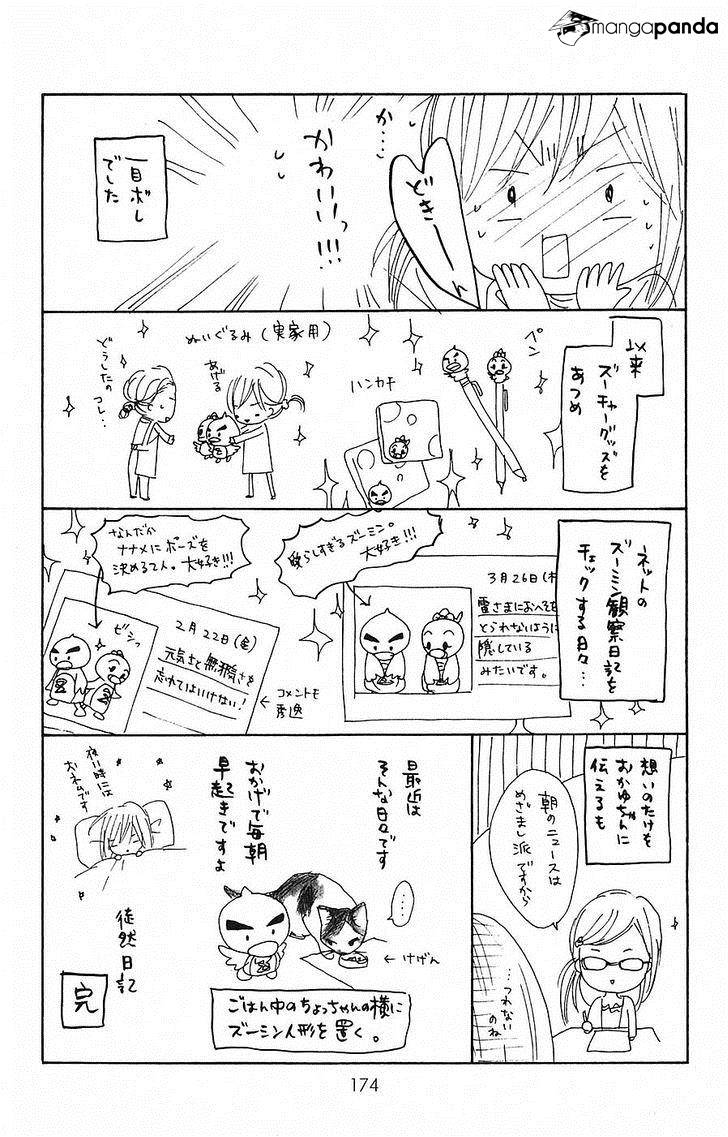 mangapanda
どきーーん
か…
かわいいっ!!!
一目ボレ
でした
以来
ズーチャーグッズを
あつめ
ペン
ハンカチ
ぬいぐるみ(実家用)
あげる
どうしたの
コレ‥
ネットの
ズーミン観察日記を
チェックする日々…
愛らしすぎるズーミン。
大好き!!!
3月26日(木
雷さまにおへそを
とられないように
隠している
みたいです。
なんだか
ナナメにポーズを
決める2人。大好き!!!
ビシッ
2月22日(金)
元気さと無邪気さを
忘れてはいけない!
←コメントも
秀逸
想いのたけを
おかゆちゃんに
伝えるも
朝のニュースは
めざまし派ですから
…つれない
のね
最近は
そんな日々です
おかげで毎朝
早起きですよ
……
←けげん
ごはん中のちょっちゃんの横に
ズーミン人形を置く。
夜い時には
おネムです
徒然日記
完
174